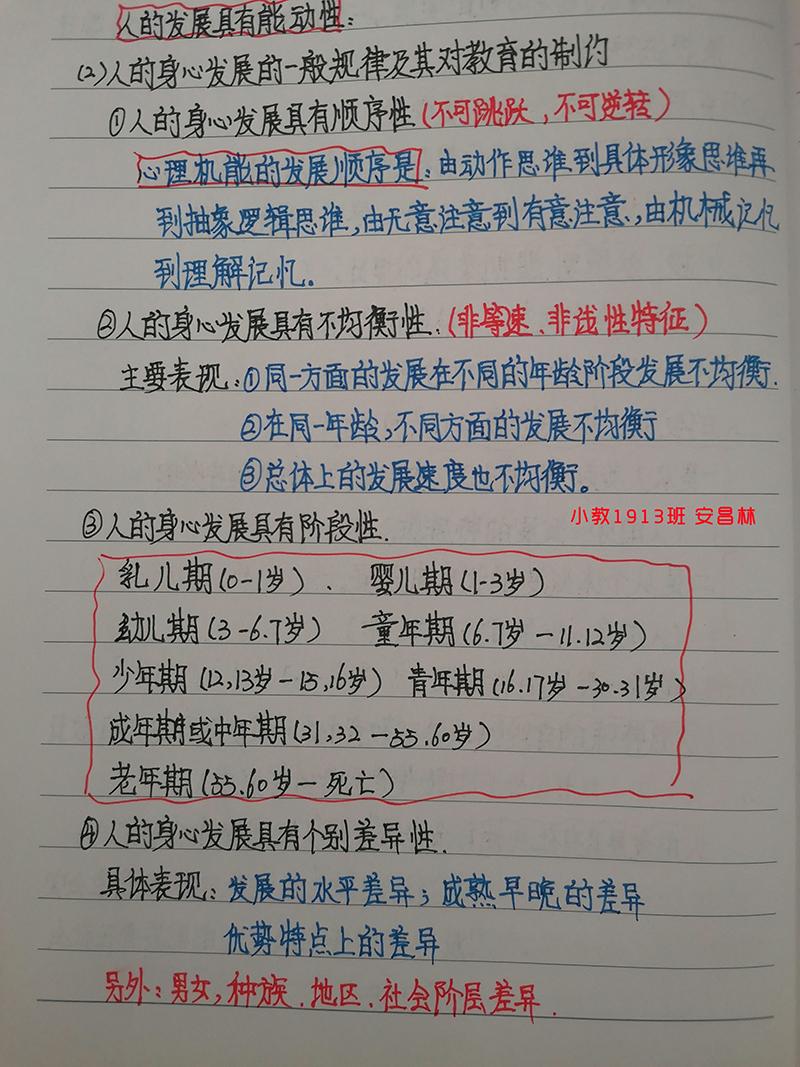 人的发展具有能动性：
(2)人的身心发展的一般规律及其对教育的制约
①人的身心发展具有顺序性(不可跳跃,不可逆转)
心理机能的发展顺序是：由动作思维到具体形象思维再
到抽象逻辑思维,由无意注意到有意注意,由机械记忆
到理解记忆。
②人的身心发展具有不均衡性.(非等速、非线性特征)
主要表现：①同一方面的发展在不同的年龄阶段发展不均衡.
②在同一年龄,不同方面的发展不均衡
③总体上的发展速度也不均衡。
小教1913班 安昌林
③人的身心发展具有阶段性.
乳儿期(0-1岁)、 婴儿期(1-3岁)
幼儿期(3-6.7岁) 童年期(6.7岁-11.12岁)
少年期(12,13岁-15,16岁) 青年期(16.17岁-30.31岁)
成年期或中年期(31,32-55.60岁)
老年期(55.60岁-死亡)
④人的身心发展具有个别差异性.
具体表现：发展的水平差异；成熟早晚的差异
优势特点上的差异
另外：男女,种族.地区.社会阶层差异.